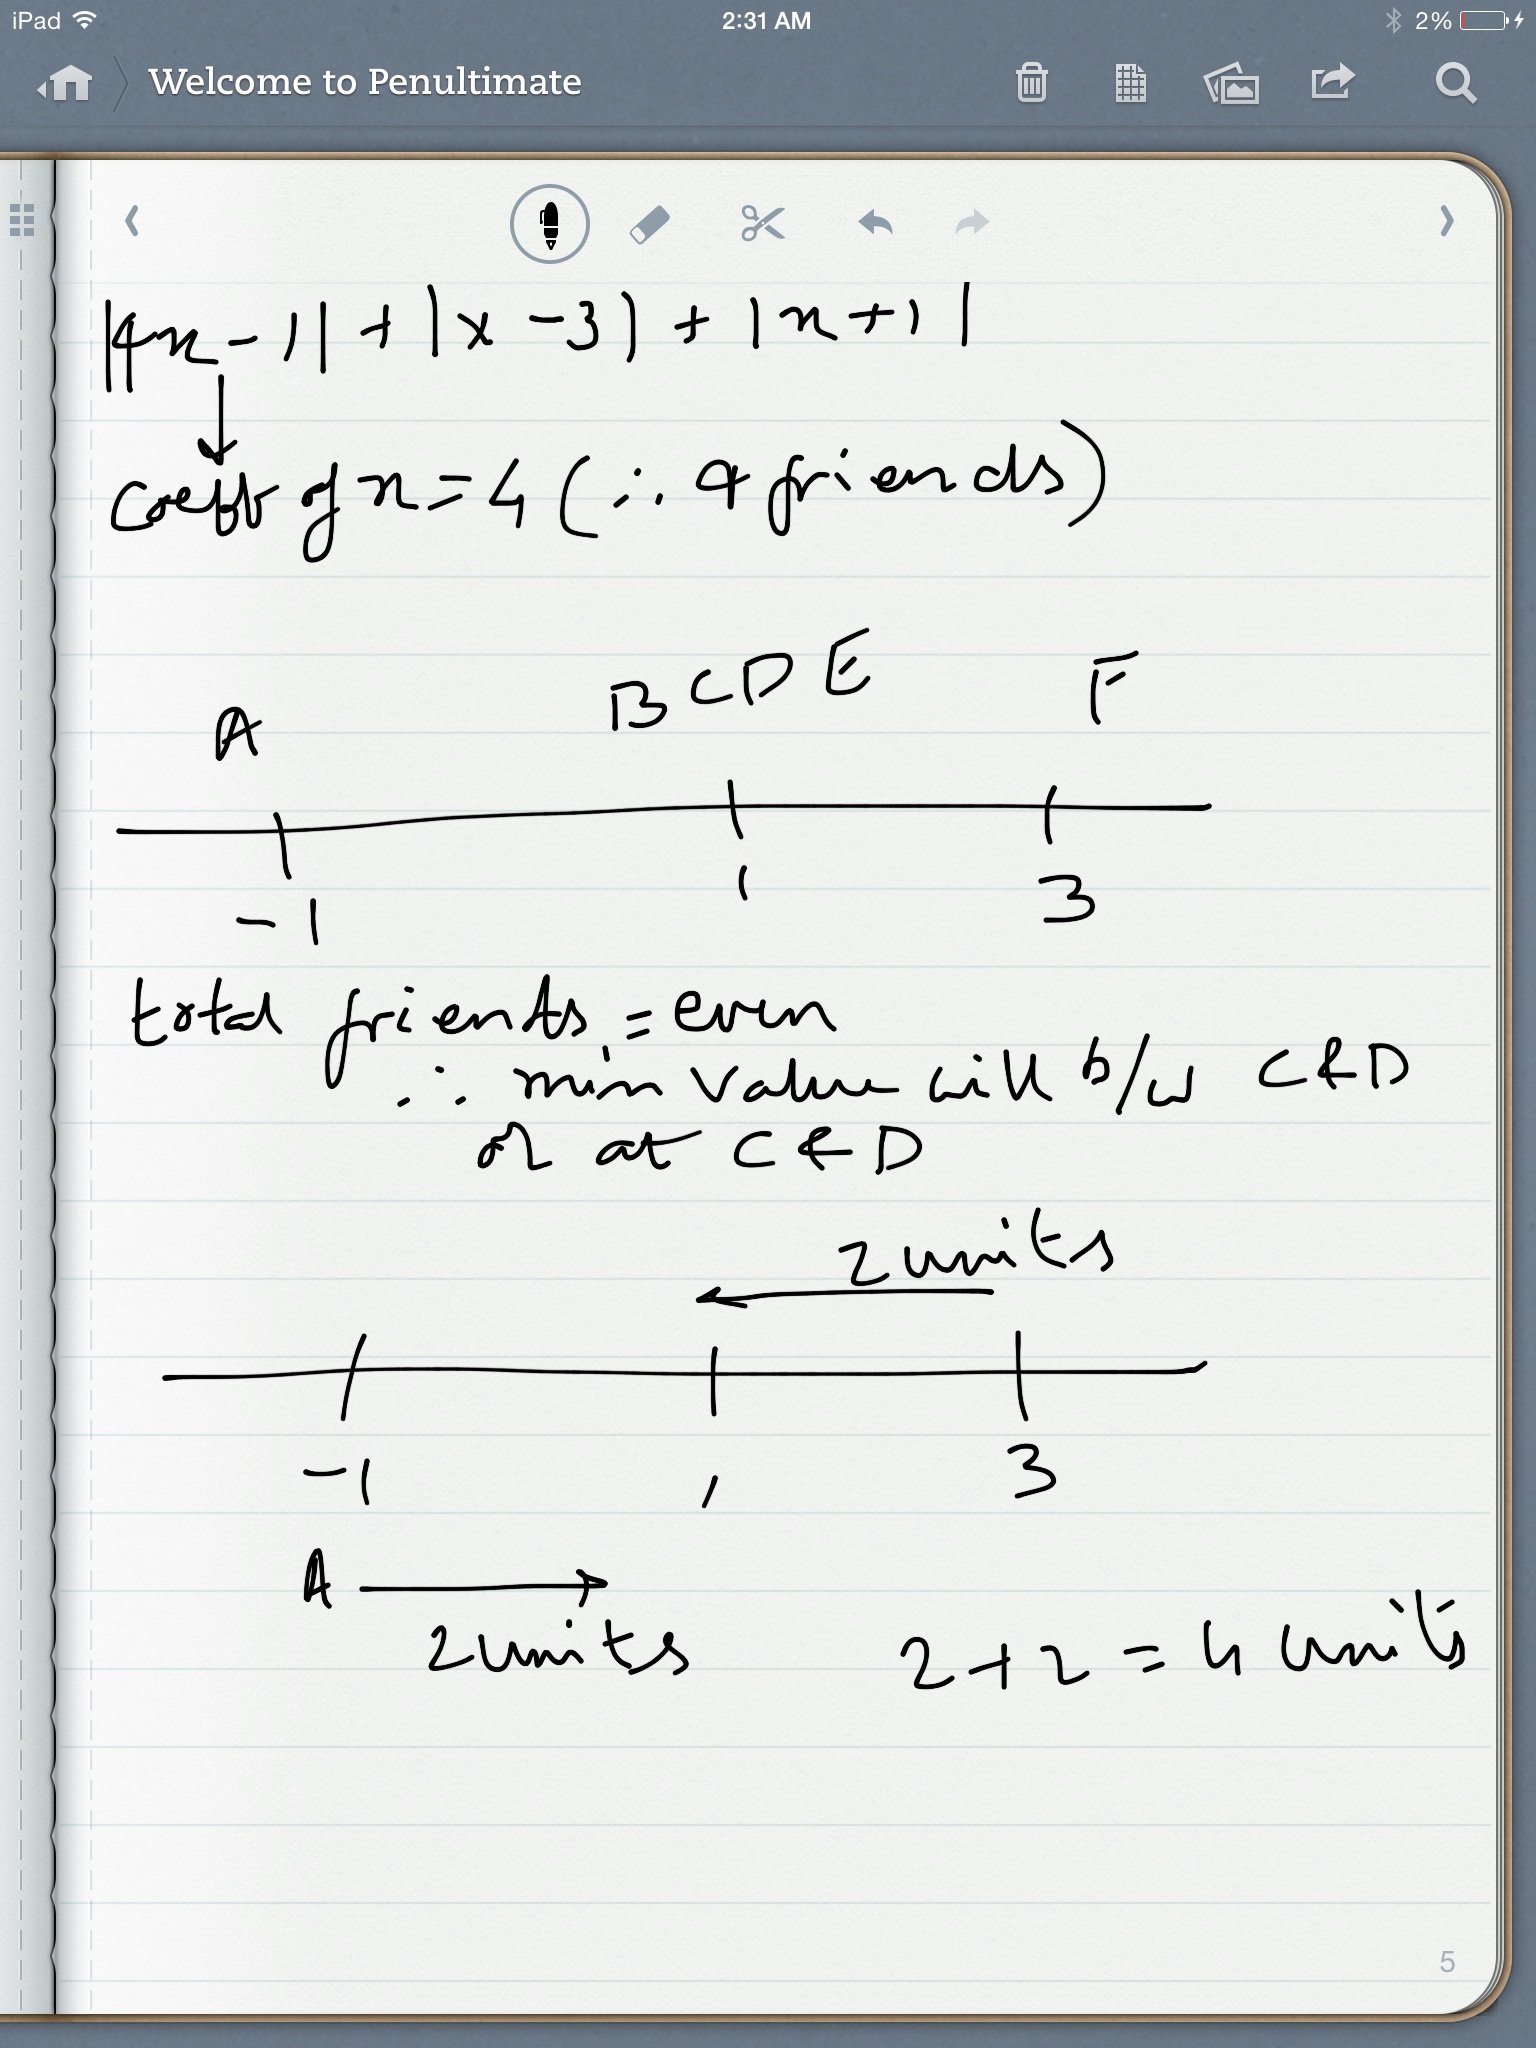 iPad 2:31 AM 2%
Welcome to Penultimate
|4x-1| + |x-3| + |x+1|
coeff of x = 4 (∴ 4 friends)
A B C D E F
-1 1 3
total friends = even
∴ min value will b/w C & D
or at C & D
2 units
-1 1 3
A → 2 units 2+2 = 4 units
5